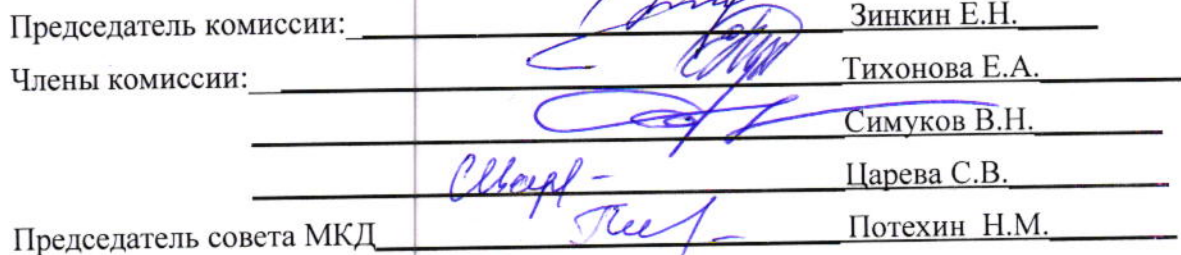 Председатель комиссии: Зинкин Е.Н.
Члены комиссии: Тихонова Е.А.
Симуков В.Н.
Царева С.В.
Председатель совета МКД Потехин Н.М.